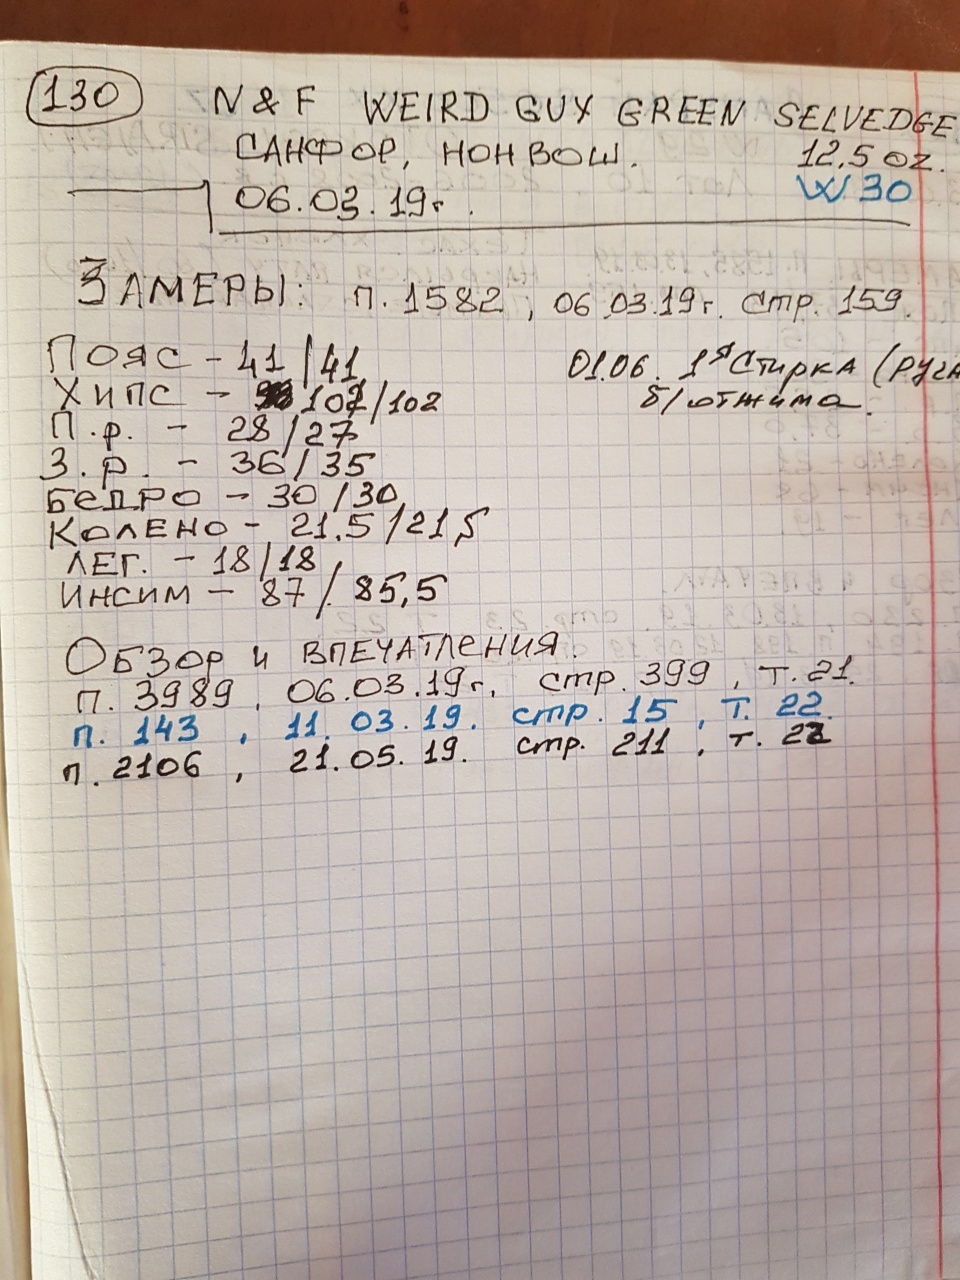 130 N & F WEIRD GUY GREEN SELVEDGE
САНФОР, НОНВОШ. 12.5 oz.
06.03.19г. W 30
ЗАМЕРЫ: п. 1582, 06.03.19г. стр. 159.
ПОЯС - 41/41
01.06. 1я СТИРКА (РУЧН
ХИПС - 102/102
б/отжима.
П.р. - 28/27
З.р. - 36/35
БЕДРО - 30/30
КОЛЕНО - 21.5/21,5
ЛЕГ. - 18/18
ИНСИМ - 87/85,5
ОБЗОР и ВПЕЧАТЛЕНИЯ.
п. 3989, 06.03.19г. стр. 399, т. 21.
п. 143, 11.03.19. стр. 15, т. 22.
п. 2106, 21.05.19. стр. 211, т. 22